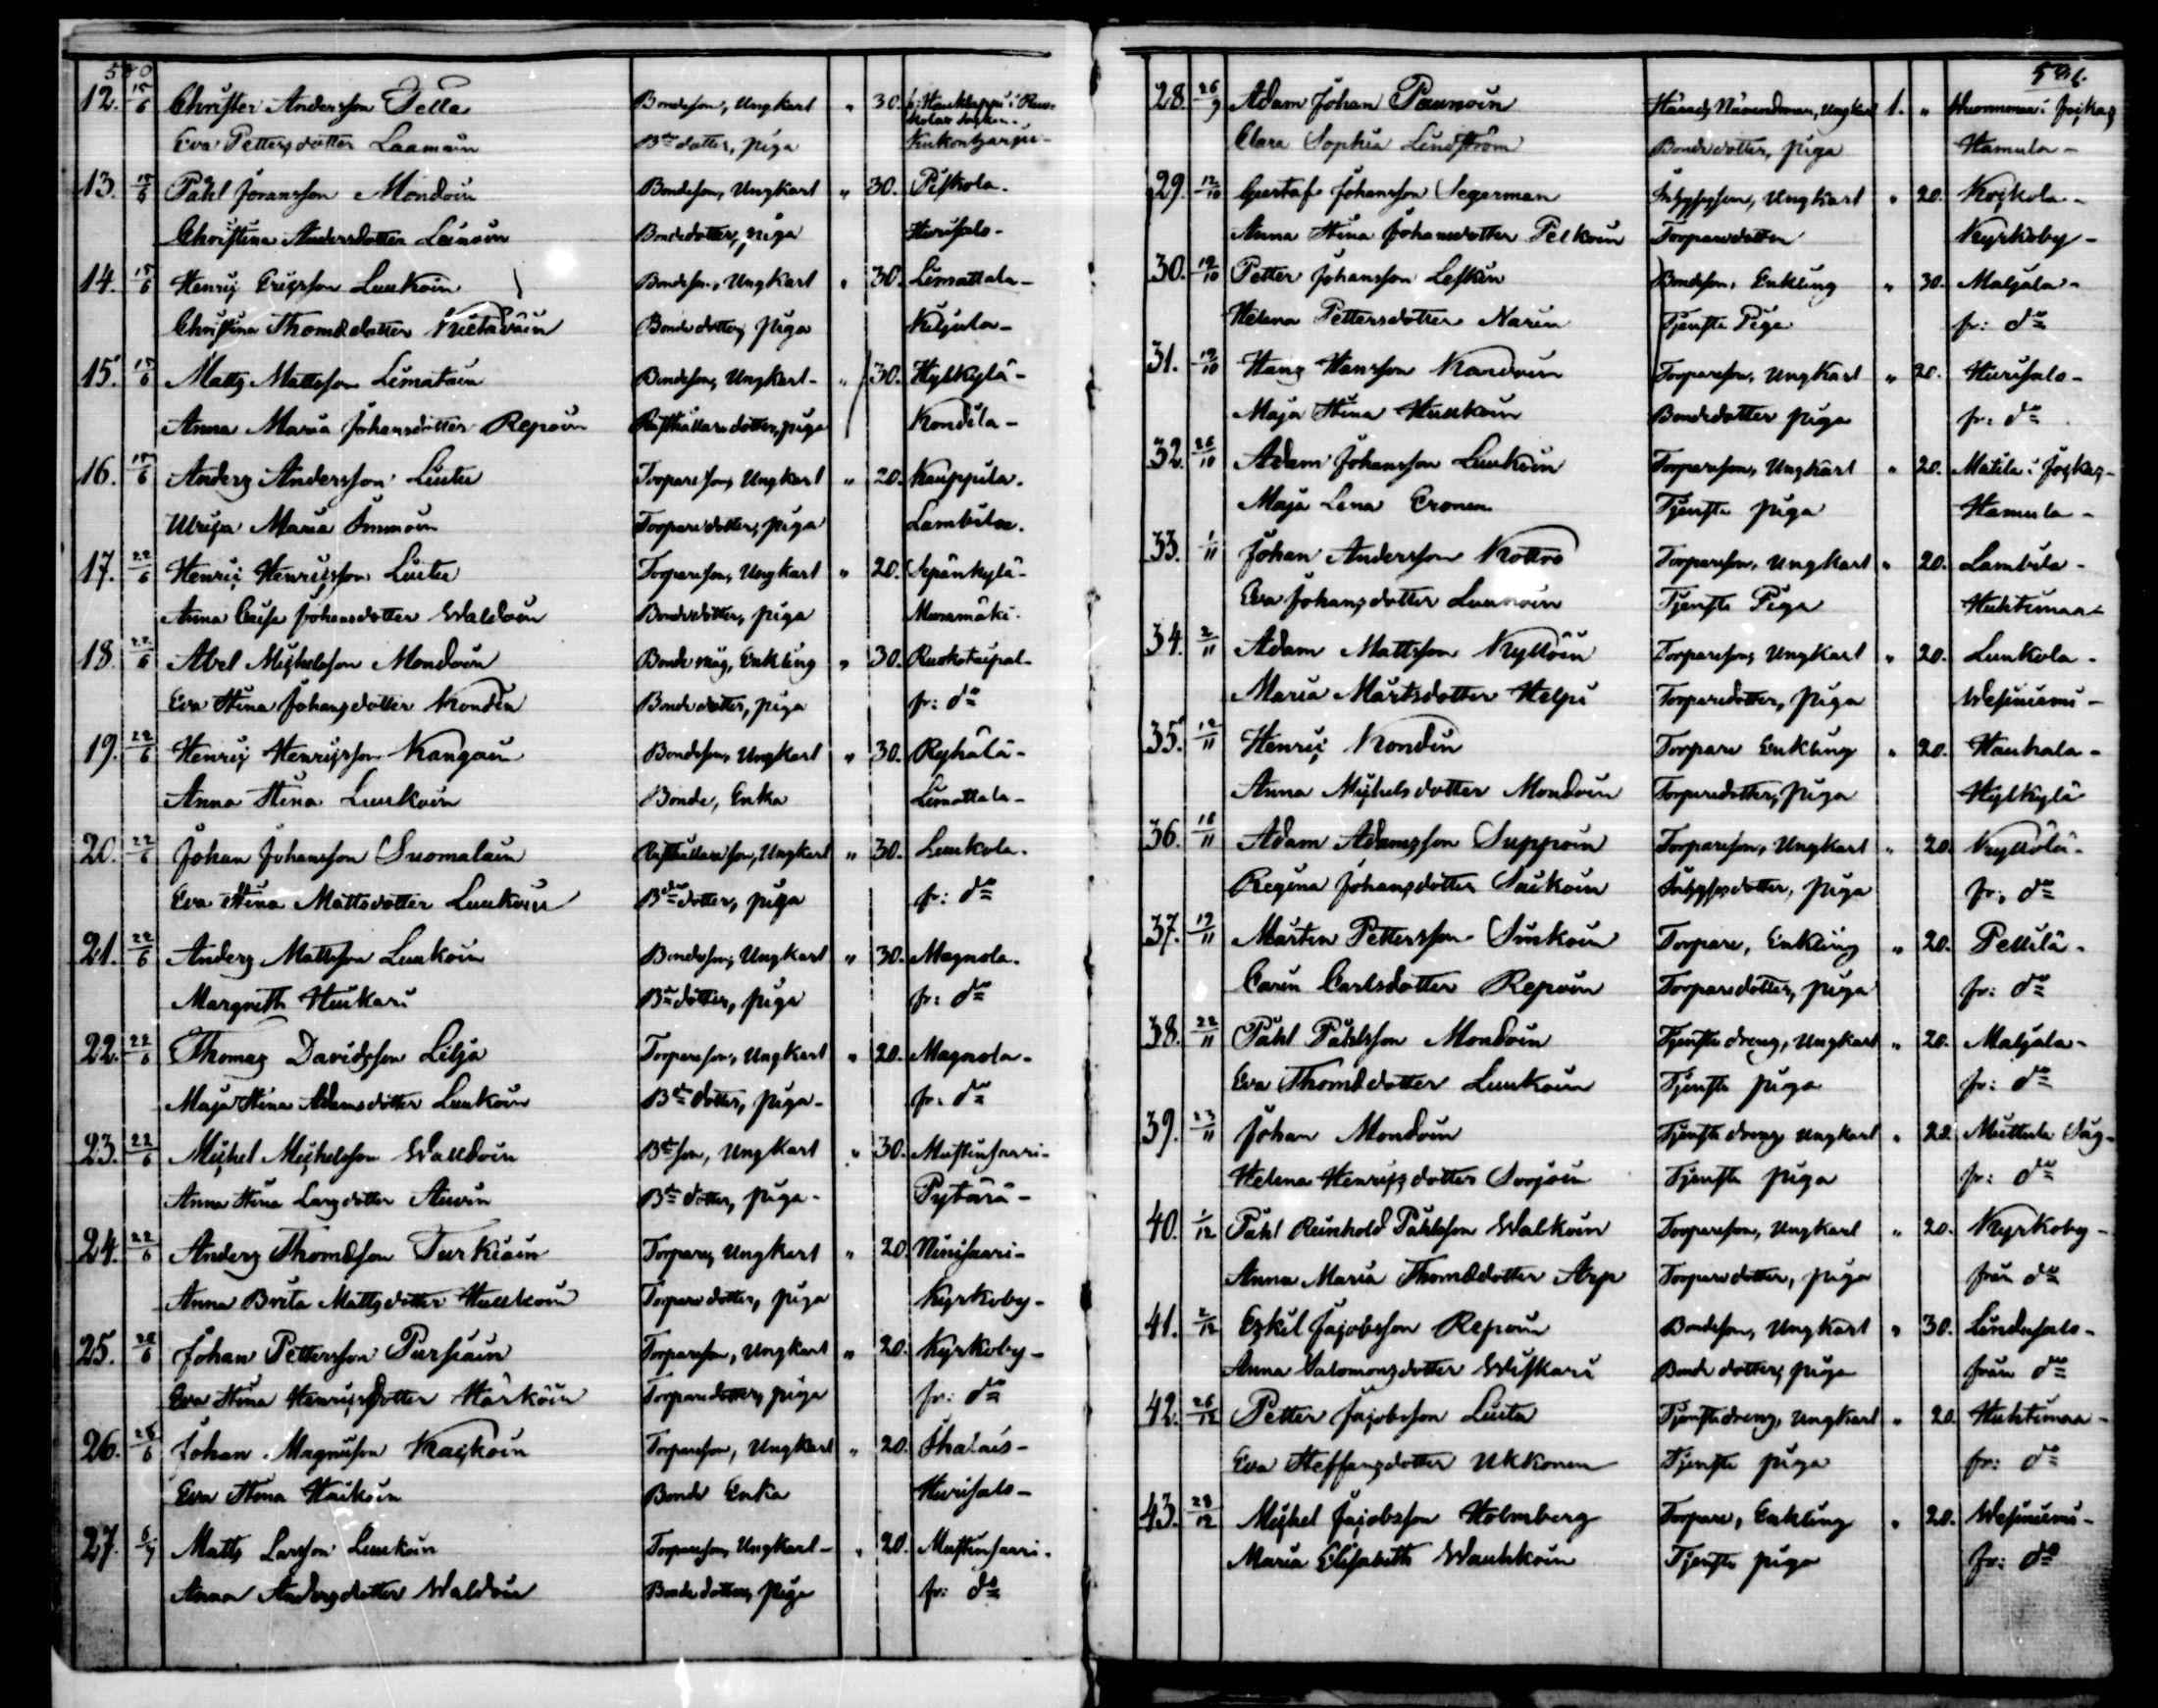 12. 15/6 Christer Andersson Pelle Bondeson, Ungkarl " 30.
Eva Pettersdotter Laamain Bde dotter, piga
13. 15/6 Påhl Joransson Mondoin Bondeson, Ungkarl " 30. Piskola.
Christina Andersdotter Leinoin Bondedotter, piga Hurisalo-
14. 15/6 Henric Ericsson Luukoin Bondeson, Ungkarl " 30. Limattala-
Christina Thomædotter Bondedotter, piga
15. 15/6 Matts Mattsson Limatain Bondeson, Ungkarl- " 30. Hylkylä-
Anna Maria Johansdotter Repoin Rusthållaredotter, piga Kondila-
16. 15/6 Anders Andersson Liutu Torpareson, Ungkarl " 20. Kauppila.
Ulrica Maria Immoin Torparedotter, piga Lambila.
17. 22/6 Henric Henricsson Liutu Torpareson, Ungkarl " 20. Sepänkylä-
Anna Caisa Johansdotter Waldoin Bondedotter, piga Muramäki.
18. 22/6 Abel Michelsson Mondoin Bonde måg, Enkling " 30. Ruokotaipal-
Eva Stina Johansdotter Kondin Bondedotter, piga fr: do
19. 22/6 Henric Henricsson Kangain Bondeson, Ungkarl " 30. Ryhälä-
Anna Stina Luukoin Bonde, Enka Limattala-
20. 22/6 Johan Johansson Suomalain Rusthållareson, Ungkarl " 30. Luukola.
Eva Stina Mattsdotter Luukoin Bde dotter, piga fr: do
21. 22/6 Anders Mattsson Luukoin Bondeson, Ungkarl " 30. Magnola.
Margreth Hiukari Bde dotter, piga fr: do
22. 22/6 Thomas Davidsson Lilja Torpareson, Ungkarl " 20. Magnola-
Maja Stina Adamsdotter Luukoin Bde dotter, piga- fr: do
23. 22/6 Michel Michelsson Walldoin Bde son, Ungkarl " 30. Mustinsaari-
Anna Stina Larsdotter Auvin Bde dotter, piga-
24. 22/6 Anders Thomæson Turkiain Torpare, Ungkarl " 20. Ninisaari-
Anna Brita Mattsdotter Hullkoin Torparedotter, piga Kyrkoby-
25. 28/6 Johan Pettersson Pursiain Torpareson, Ungkarl " 20. Kyrkoby-
Eva Stina Henricsdotter Härköin Torparedotter, piga fr: do
26. 28/6 Johan Magnusson Kaickoin Torpareson, Ungkarl " 20. Ihalais-
Eva Stina Haikoin Bonde Enka Hurisalo-
27. 6/7 Matts Larsson Luukoin Torpareson, Ungkarl- " 20. Mustinsaari.
Anna Andersdotter Waldoin Bondedotter, piga fr: do
28. 26/9 Adam Johan Paunoin Härads Nämndeman, Ungkarl 1. "
Clara Sophia Lindström Bondedotter, piga Hamula-
29. 12/10 Gustaf Johansson Segerman Inhysesson, Ungkarl " 20. Koskola-
Anna Stina Johansdotter Pelkoin Torparedotter Kyrkoby-
30. 19/10 Petter Johansson Leskin Bondeson, Enkling " 30. Maljala-
Helena Pettersdotter Narin Tjenste Piga fr: do
31. 19/10 Hans Hansson Kandoin Torpareson, Ungkarl " 20. Hurisalo-
Maja Stina Hullkoin Bondedotter piga fr: do
32. 26/10 Adam Johansson Luukoin Torpareson, Ungkarl " 20. Matila i Jockas-
Maja Lena Eronen Tjenste piga Hamula-
33. 1/11 Johan Andersson Kottro Torpareson, Ungkarl " 20. Lambila-
Eva Johansdotter Luukoin Tjenste Piga Huhtimaa-
34. 2/11 Adam Mattsson Kyllöin Torpareson, Ungkarl " 20. Luukola-
Maria Mårtsdotter Helpi Torparedotter, piga Wesiniemi-
35. 12/11 Henric Kondin Torpare Enkling " 20. Haukala-
Anna Michelsdotter Mondoin Torparedotter, piga Hylkylä
36. 16/11 Adam Adamsson Suppoin Torpareson, Ungkarl " 20. Kyllölä-
Regina Johansdotter Saikoin Inhysesdotter, piga fr: do
37. 19/11 Mårten Pettersson Sinkoin Torpare, Enkling " 20. Pellilä-
Carin Carlsdotter Repoin Torparedotter, piga fr: do
38. 22/11 Påhl Påhlsson Mondoin Tjenste dreng, Ungkarl " 20. Maljala-
Eva Thomædotter Luukoin Tjenste piga fr: do
39. 23/11 Johan Mondoin Tjenste dreng Ungkarl " 22 Muttula Såg-
Helena Henricsdotter Sorjoin Tjenste piga fr: do
40. 1/12 Påhl Reinhold Påhlsson Walkoin Torpareson, Ungkarl " 20. Kyrkoby-
Anna Maria Thomædotter Arp Torparedotter, piga från do
41. 2/12 Eskil Jacobsson Repoin Bondeson, Ungkarl " 30. Lindusalo-
Anna Salomonsdotter Wiskari Bonde dotter, piga från do
42. 26/12 Petter Jacobsson Liuta Tjenstedreng, Ungkarl " 20. Huhtimaa-
Eva Steffansdotter Ukkonen Tjenste piga fr: do
43. 28/12 Michel Jacobsson Holmberg Torpare, Enkling " 20. Wesiniemi-
Maria Elisabeth Wauhkoin Tjenste piga fr: do